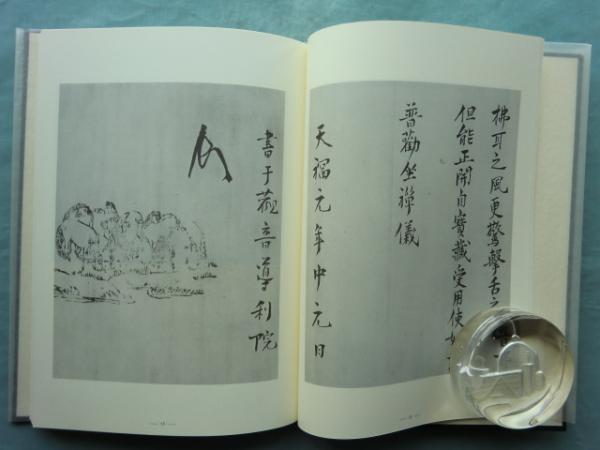 拂耳之風更驚擊舌之
但能正開自寶藏受用使
普勸坐禪儀
天福元年中元日
書于觀音導利院